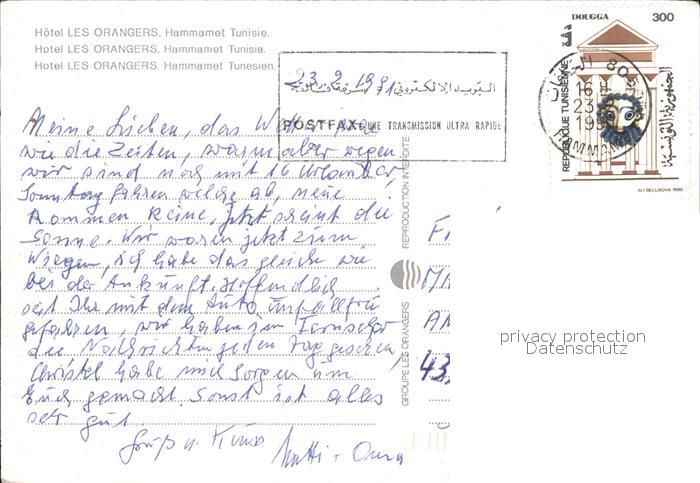 Hôtel LES ORANGERS, Hammamet Tunisie.
Hotel LES ORANGERS, Hammamet Tunisia.
Hotel LES ORANGERS, Hammamet Tunesien.
DOUGGA 300
دقة
REPUBLIQUE TUNISIENNE
الجمهورية التونسية
ALI BELLAGHA 1990
23.2.1991
البريد الإلكتروني
POSTFAX: UNE TRANSMISSION ULTRA RAPIDE
Meine Lieben, das
wie die Zeiten, warm aber wegen
wir sind noch mit 16 Urlauber,
Sonntag fahren welche ab, neue
kommen keine. Jetzt scheint die
Sonne. Wir waren jetzt zum
Wiegen, ich habe das gleiche wie
bei der Ankunft. Hoffendlich
seit Ihr mit dem Auto Unfallfrei
gefahren, wir haben im Fernseher
die Nachrichten jeden Tag gesehen,
Christel habe mich Sorgen um
Euch gemacht. Sonst ist alles
sehr gut
Gruß u. Kuss
REPRODUCTION INTERDITE
GROUPE LES ORANGERS
43
privacy protection
Datenschutz